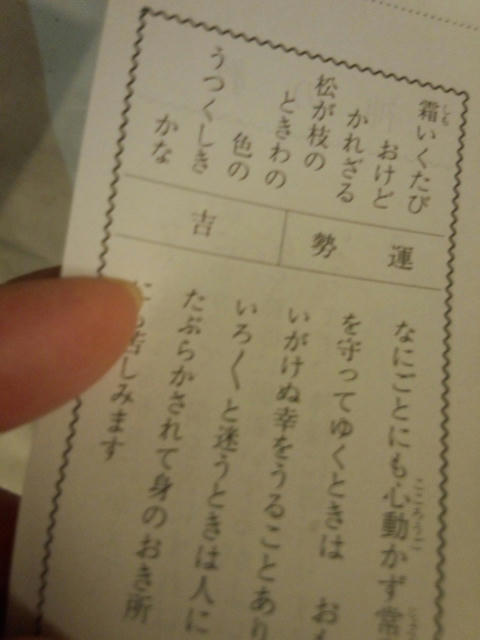 霜いくたび
おけど
かれざる
松が枝の
ときわの
色の
うつくしき
かな
運勢
吉
なにごとにも心動かず常
を守ってゆくときは お
いがけぬ幸をうることあり
いろ〱と迷うときは人に
たぶらかされて身のおき所
にも苦しみます